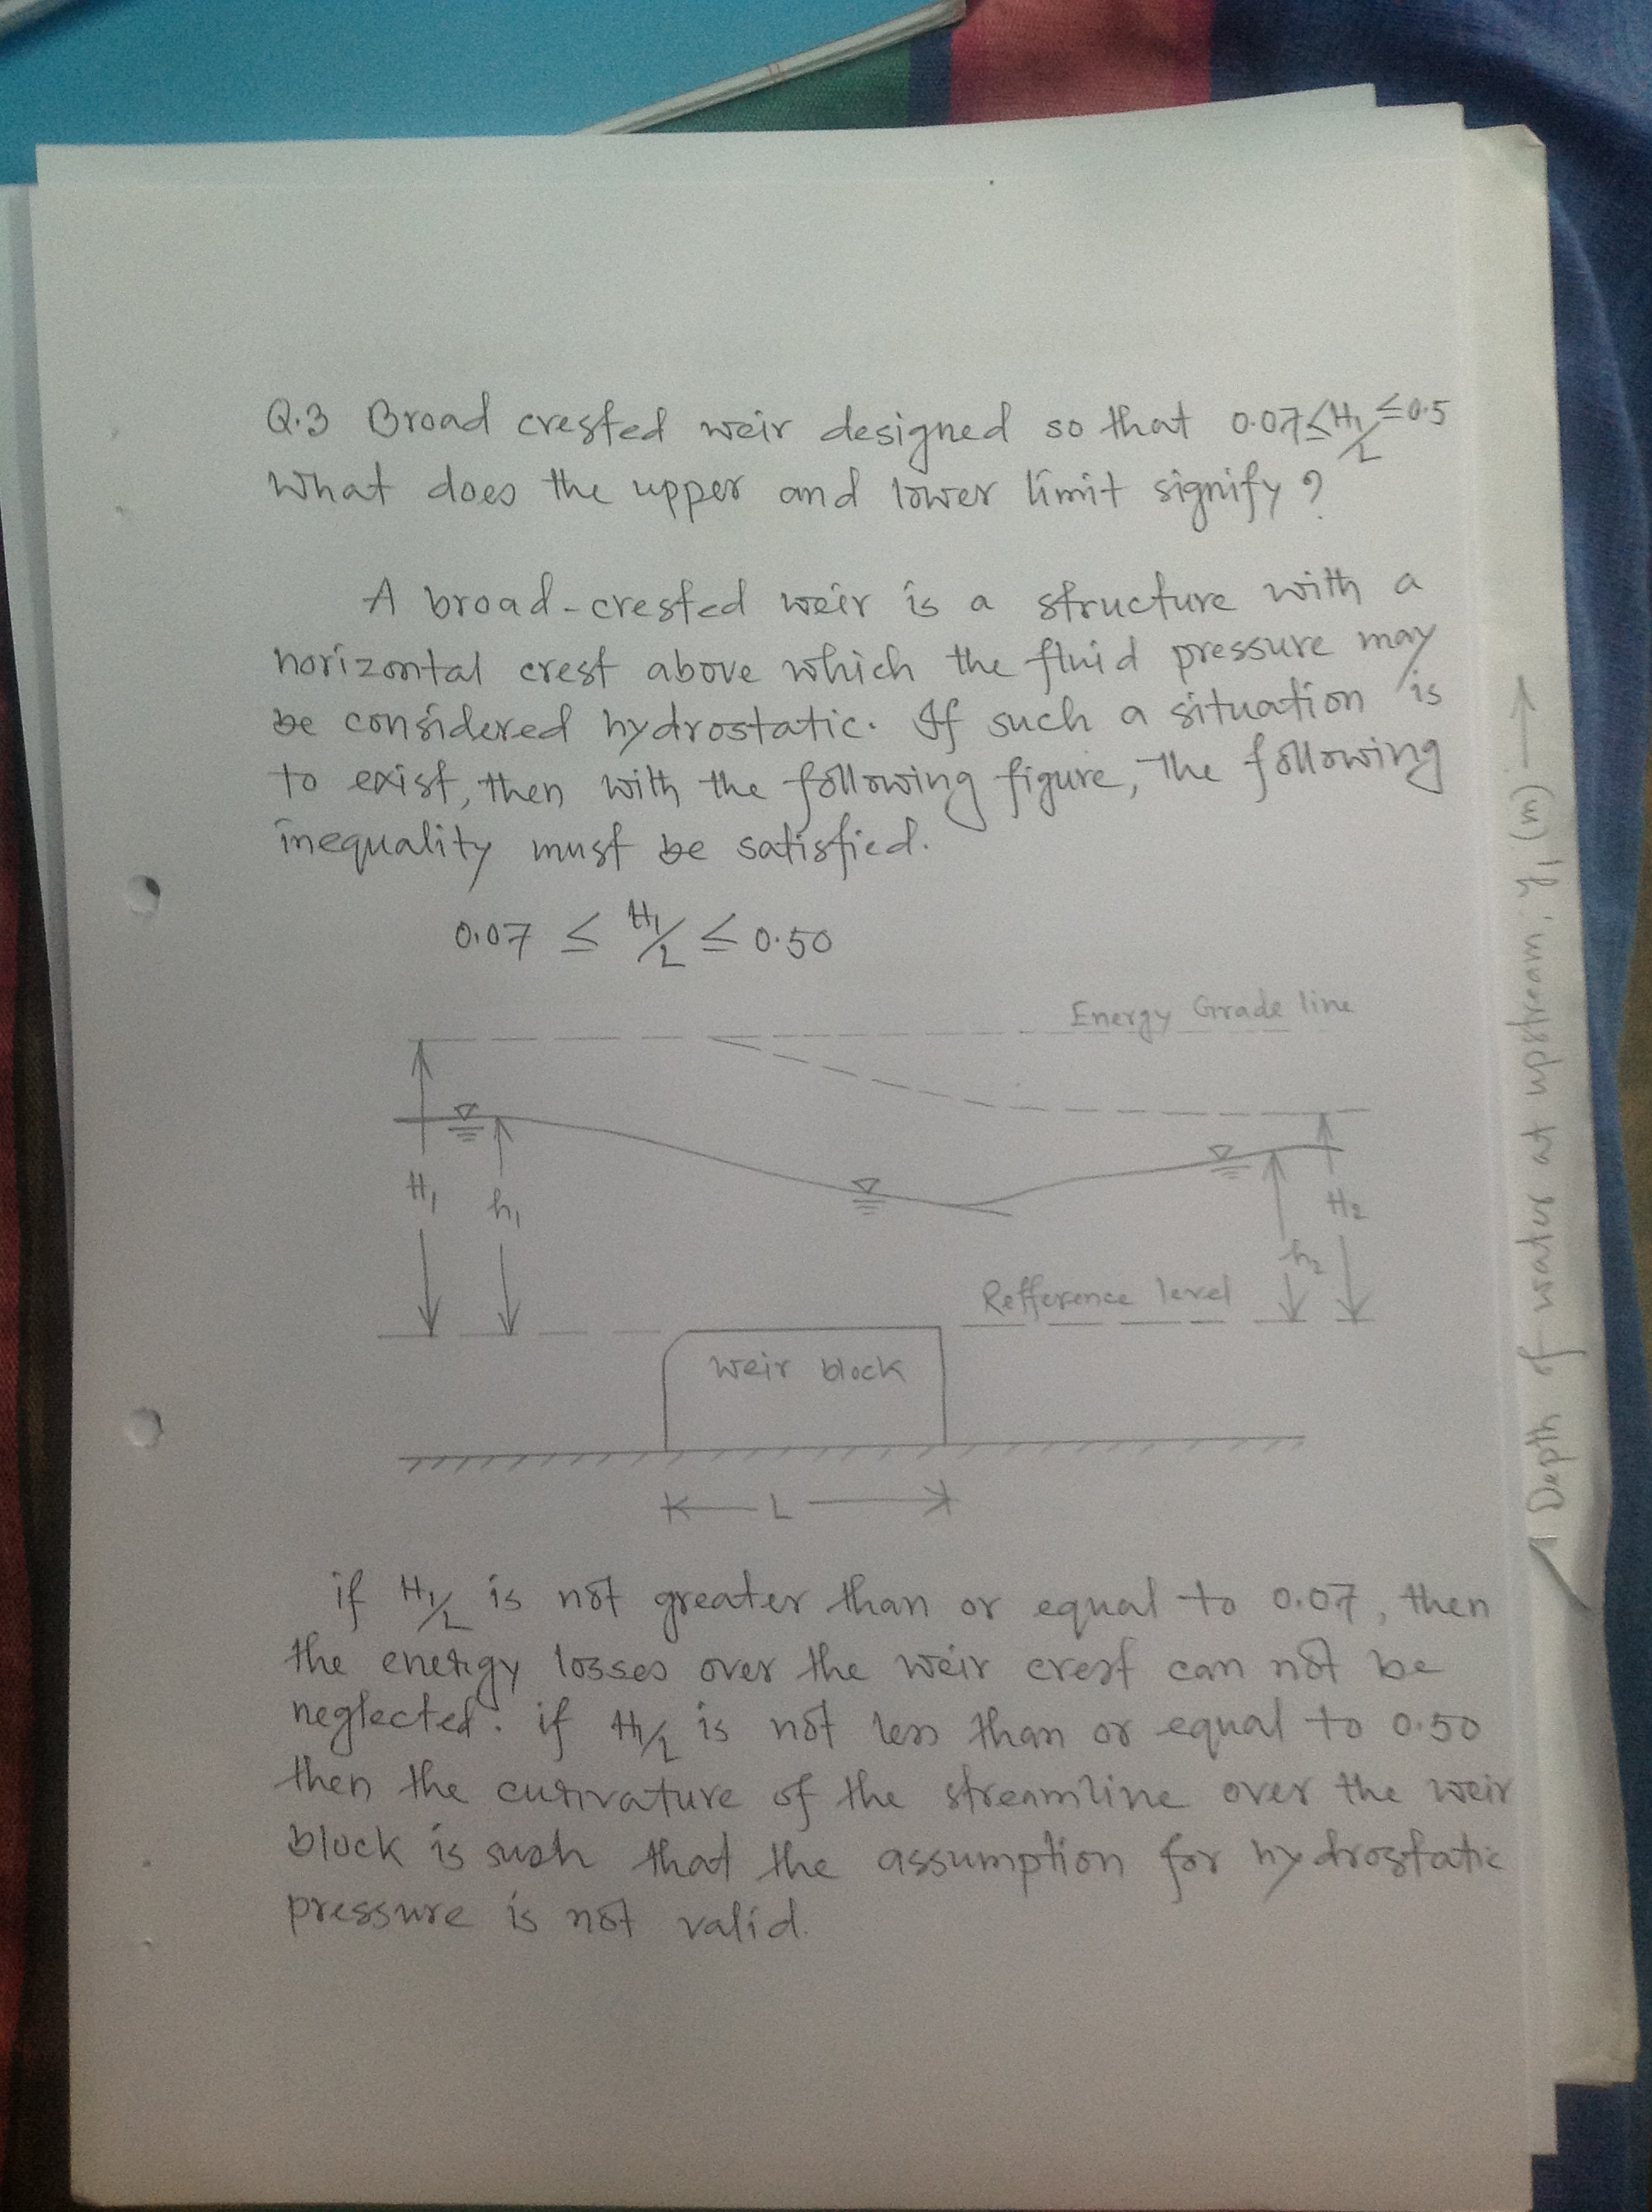 Q.3 Broad crested weir designed so that 0.07≤H₁/L≤0.5
What does the upper and lower limit signify?
A broad-crested weir is a structure with a
horizontal crest above which the fluid pressure may
be considered hydrostatic. If such a situation is
to exist, then with the following figure, the following
inequality must be satisfied.
0.07 ≤ H₁/L ≤ 0.50
Energy Grade line
H₁
h₁
H₂
h₂
Refference level
weir block
L
if H₁/L is not greater than or equal to 0.07, then
the energy losses over the weir crest can not be
neglected. if H₁/L is not less than or equal to 0.50
then the curvature of the streamline over the weir
block is such that the assumption for hydrostatic
pressure is not valid.
Depth of water at upstream, y₁ (m) →